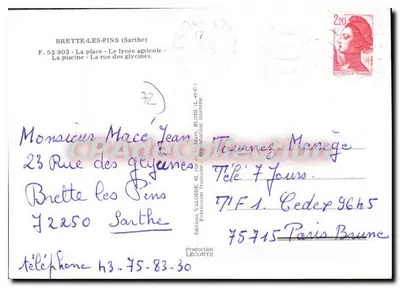 BRETTE-LES-PINS (Sarthe)
F. 52 903 - La place - Le lycée agricole -
La piscine - La rue des glycines.
17
2,20
72
Monsieur Macé Jean
23 Rue des glycines
Brette les Pins
72250 Sarthe
téléphone 43-75-83-30
Production
LECONTE
Tournez Manège
Télé 7 Jours.
TF1. Cedex 9645
75715 Paris Brune